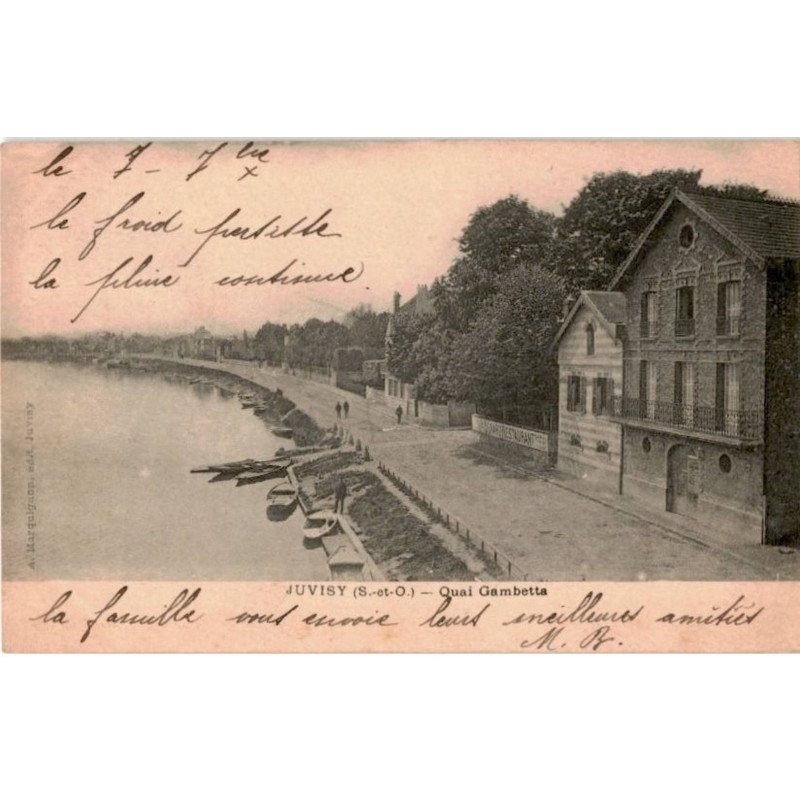 le 7 - 7bre x
le froid pertitte
la pluie continue.
RESTAURANT
A. Marquignon, édit. Juvisy
JUVISY (S.-et-O.) — Quai Gambetta
la famille vous envoie leurs meilleures amitiés
M. B.